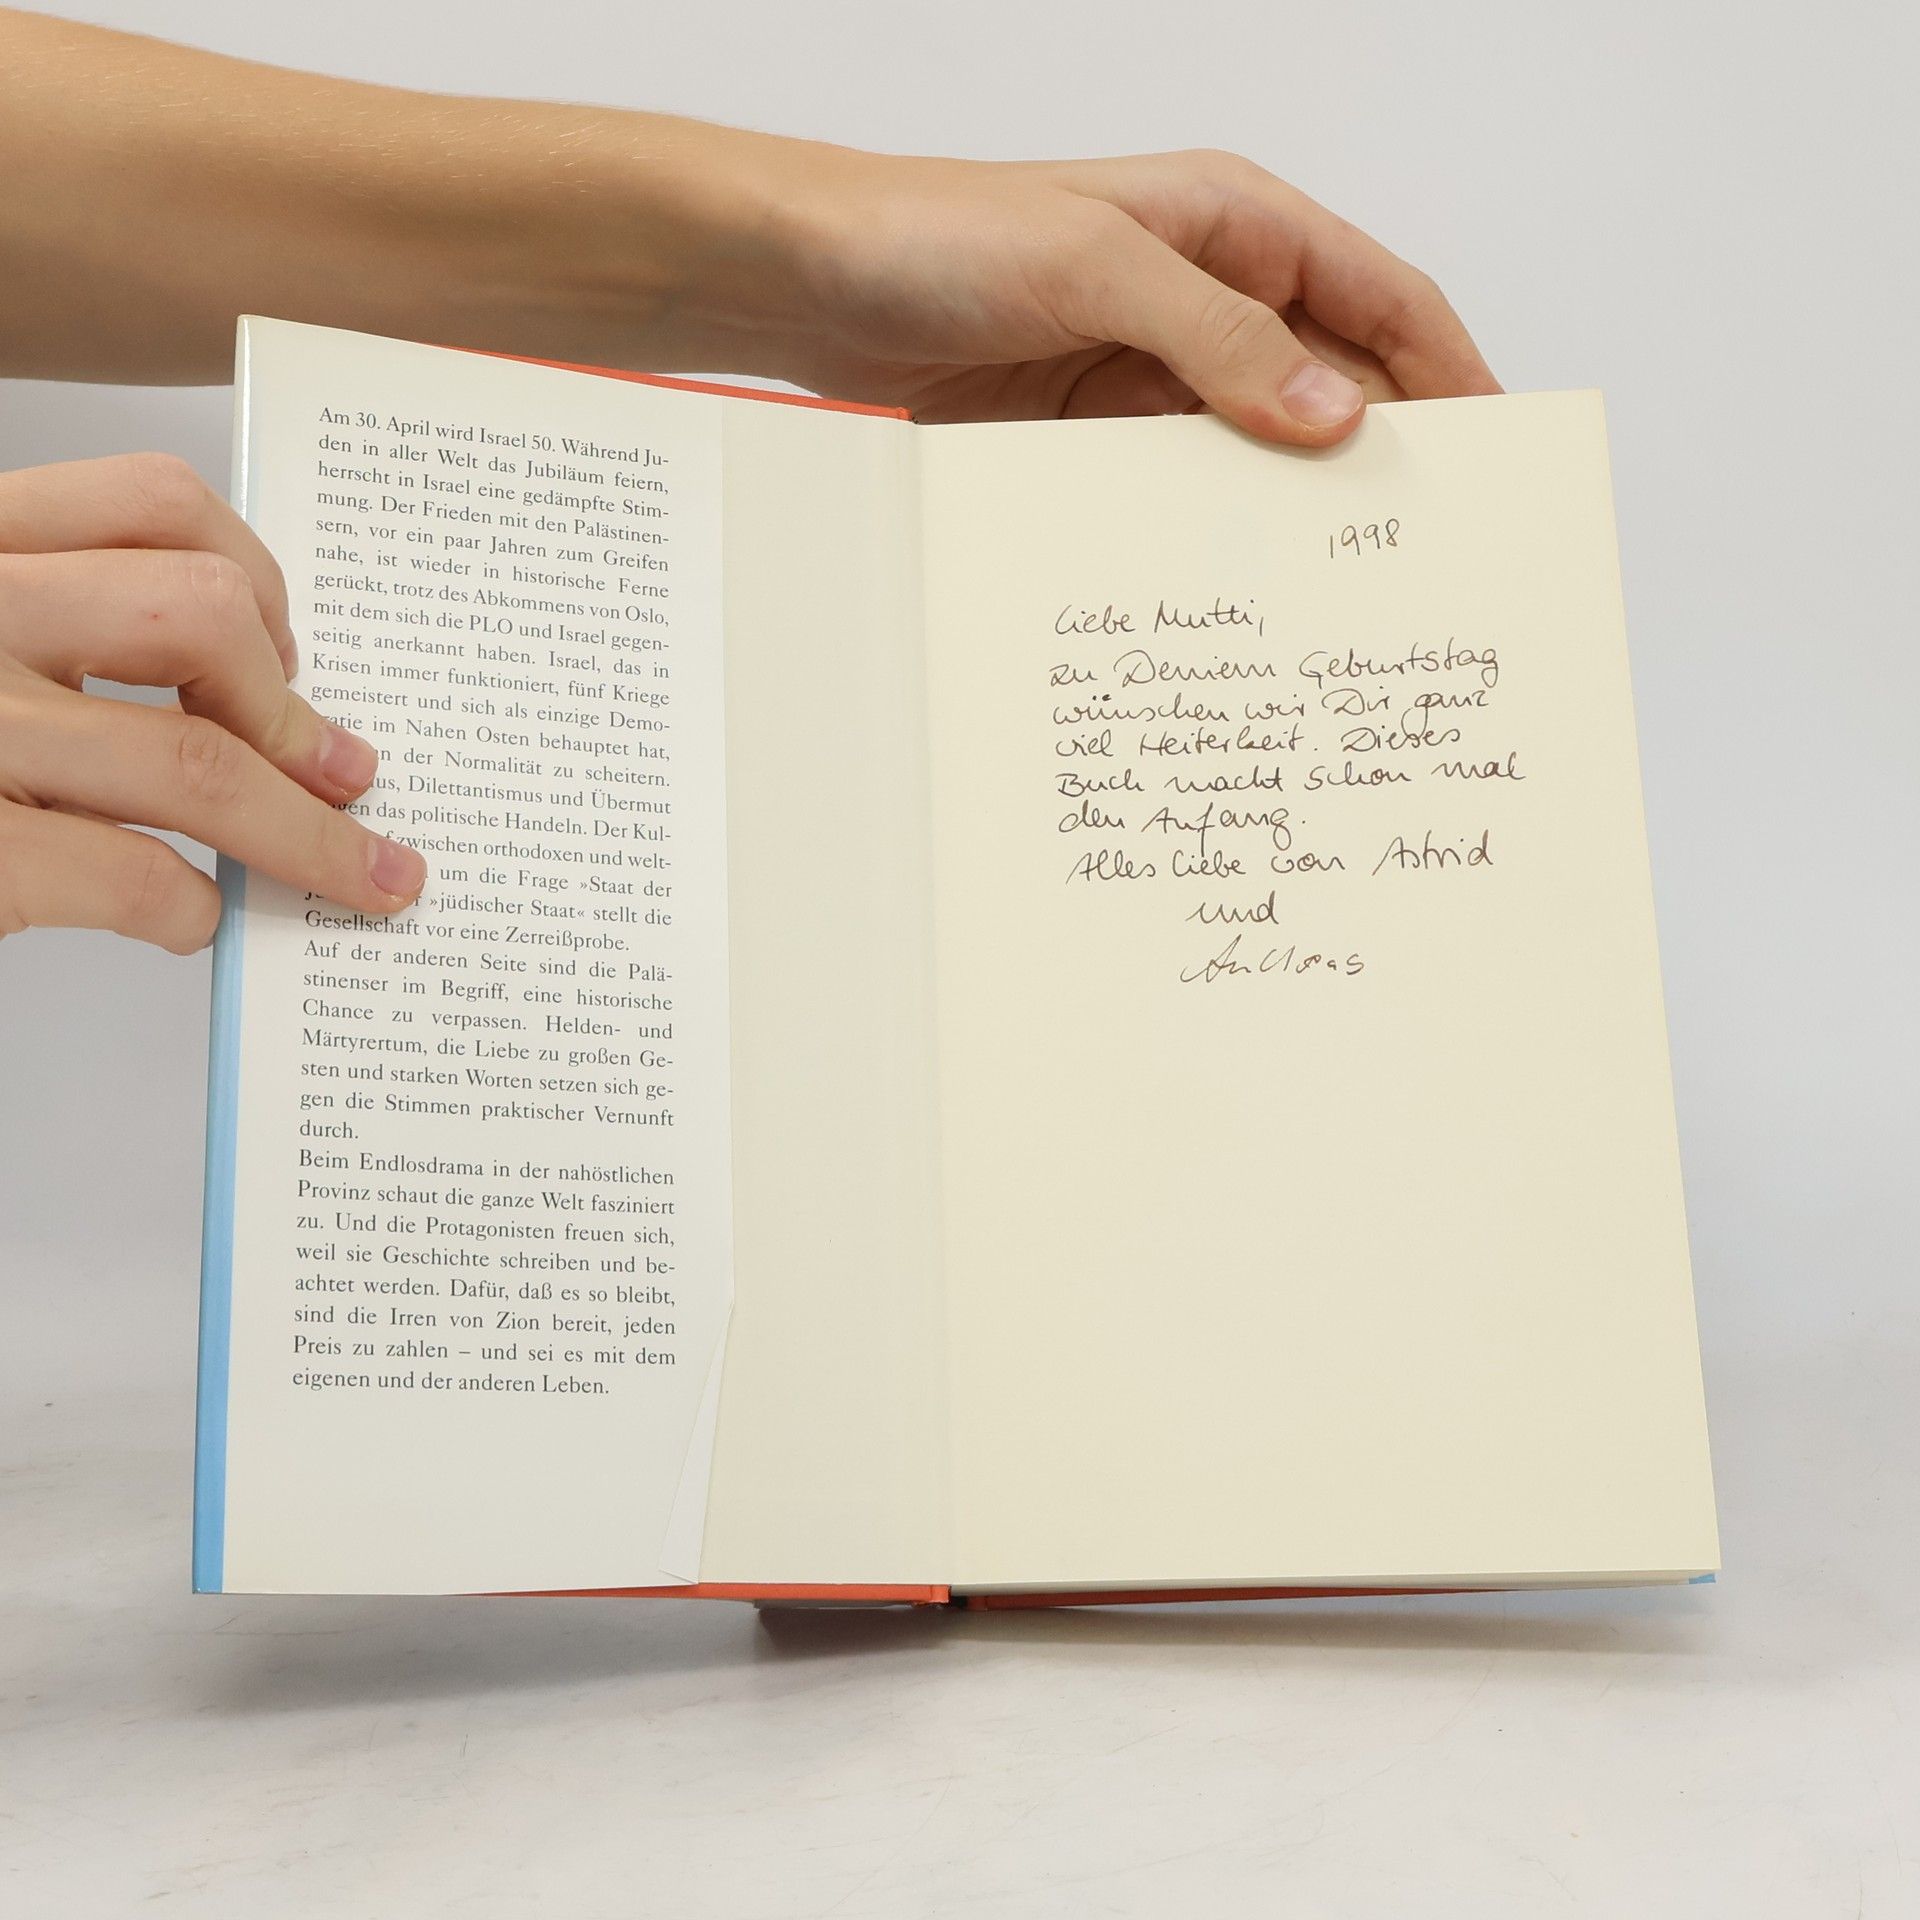 Am 30. April wird Israel 50. Während Ju-
den in aller Welt das Jubiläum feiern,
herrscht in Israel eine gedämpfte Stim-
mung. Der Frieden mit den Palästinen-
sern, vor ein paar Jahren zum Greifen
nahe, ist wieder in historische Ferne
gerückt, trotz des Abkommens von Oslo,
mit dem sich die PLO und Israel gegen-
seitig anerkannt haben. Israel, das in
Krisen immer funktioniert, fünf Kriege
gemeistert und sich als einzige Demo-
im Nahen Osten behauptet hat,
der Normalität zu scheitern.
Dilettantismus und Übermut
das politische Handeln. Der Kul-
zwischen orthodoxen und welt-
um die Frage »Staat der
»jüdischer Staat« stellt die
Gesellschaft vor eine Zerreißprobe.
Auf der anderen Seite sind die Palä-
stinenser im Begriff, eine historische
Chance zu verpassen. Helden- und
Märtyrertum, die Liebe zu großen Ge-
sten und starken Worten setzen sich ge-
gen die Stimmen praktischer Vernunft
durch.
Beim Endlosdrama in der nahöstlichen
Provinz schaut die ganze Welt fasziniert
zu. Und die Protagonisten freuen sich,
weil sie Geschichte schreiben und be-
achtet werden. Dafür, daß es so bleibt,
sind die Irren von Zion bereit, jeden
Preis zu zahlen – und sei es mit dem
eigenen und der anderen Leben.
1998
Liebe Mutti,
zu Deinem Geburtstag
wünschen wir Dir ganz
viel Heiterkeit. Dieses
Buch macht schon mal
den Anfang.
Alles Liebe von Astrid
und
Andreas